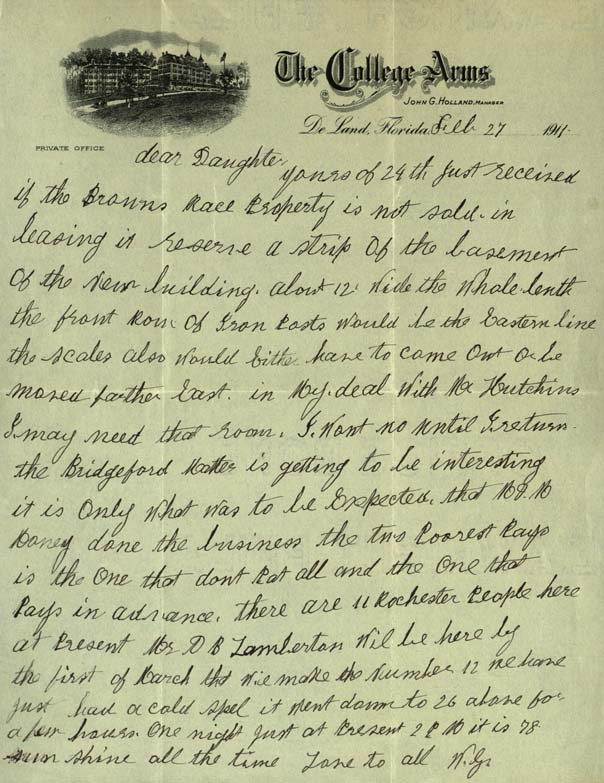 The College Arms
John G. Holland, Manager
De Land, Florida, Feb 27 1911.
PRIVATE OFFICE
dear Daughter
yours of 24th Just received
if the Browns Race Property is not sold. in
leasing it reserve a strip Of the basement
Of the New building. about 12' Wide the Whole lenth
the front Row Of Iron Posts Would be the Eastern line
the scales also Would Eithe have to come Out Or be
moved farther East. in My deal With Mr Hutchins
I may need that room. I Wont no Until I return
the Bridgeford Matter is getting to be interesting
it is Only What Was to be Expected. that
done the business the two Poorest Pays
is the One that dont Pat all and the One that
Pays in advance. there are 11 Rochester People here
at Present Mr D B Lamberton Wil be here by
the first of March tht Wil make the Number 12 we have
Just had a cold spel it Went down to 26 above for
a few hours One night Just at Present 2 P M it is 78
sun shine all the time Love to all W.G.